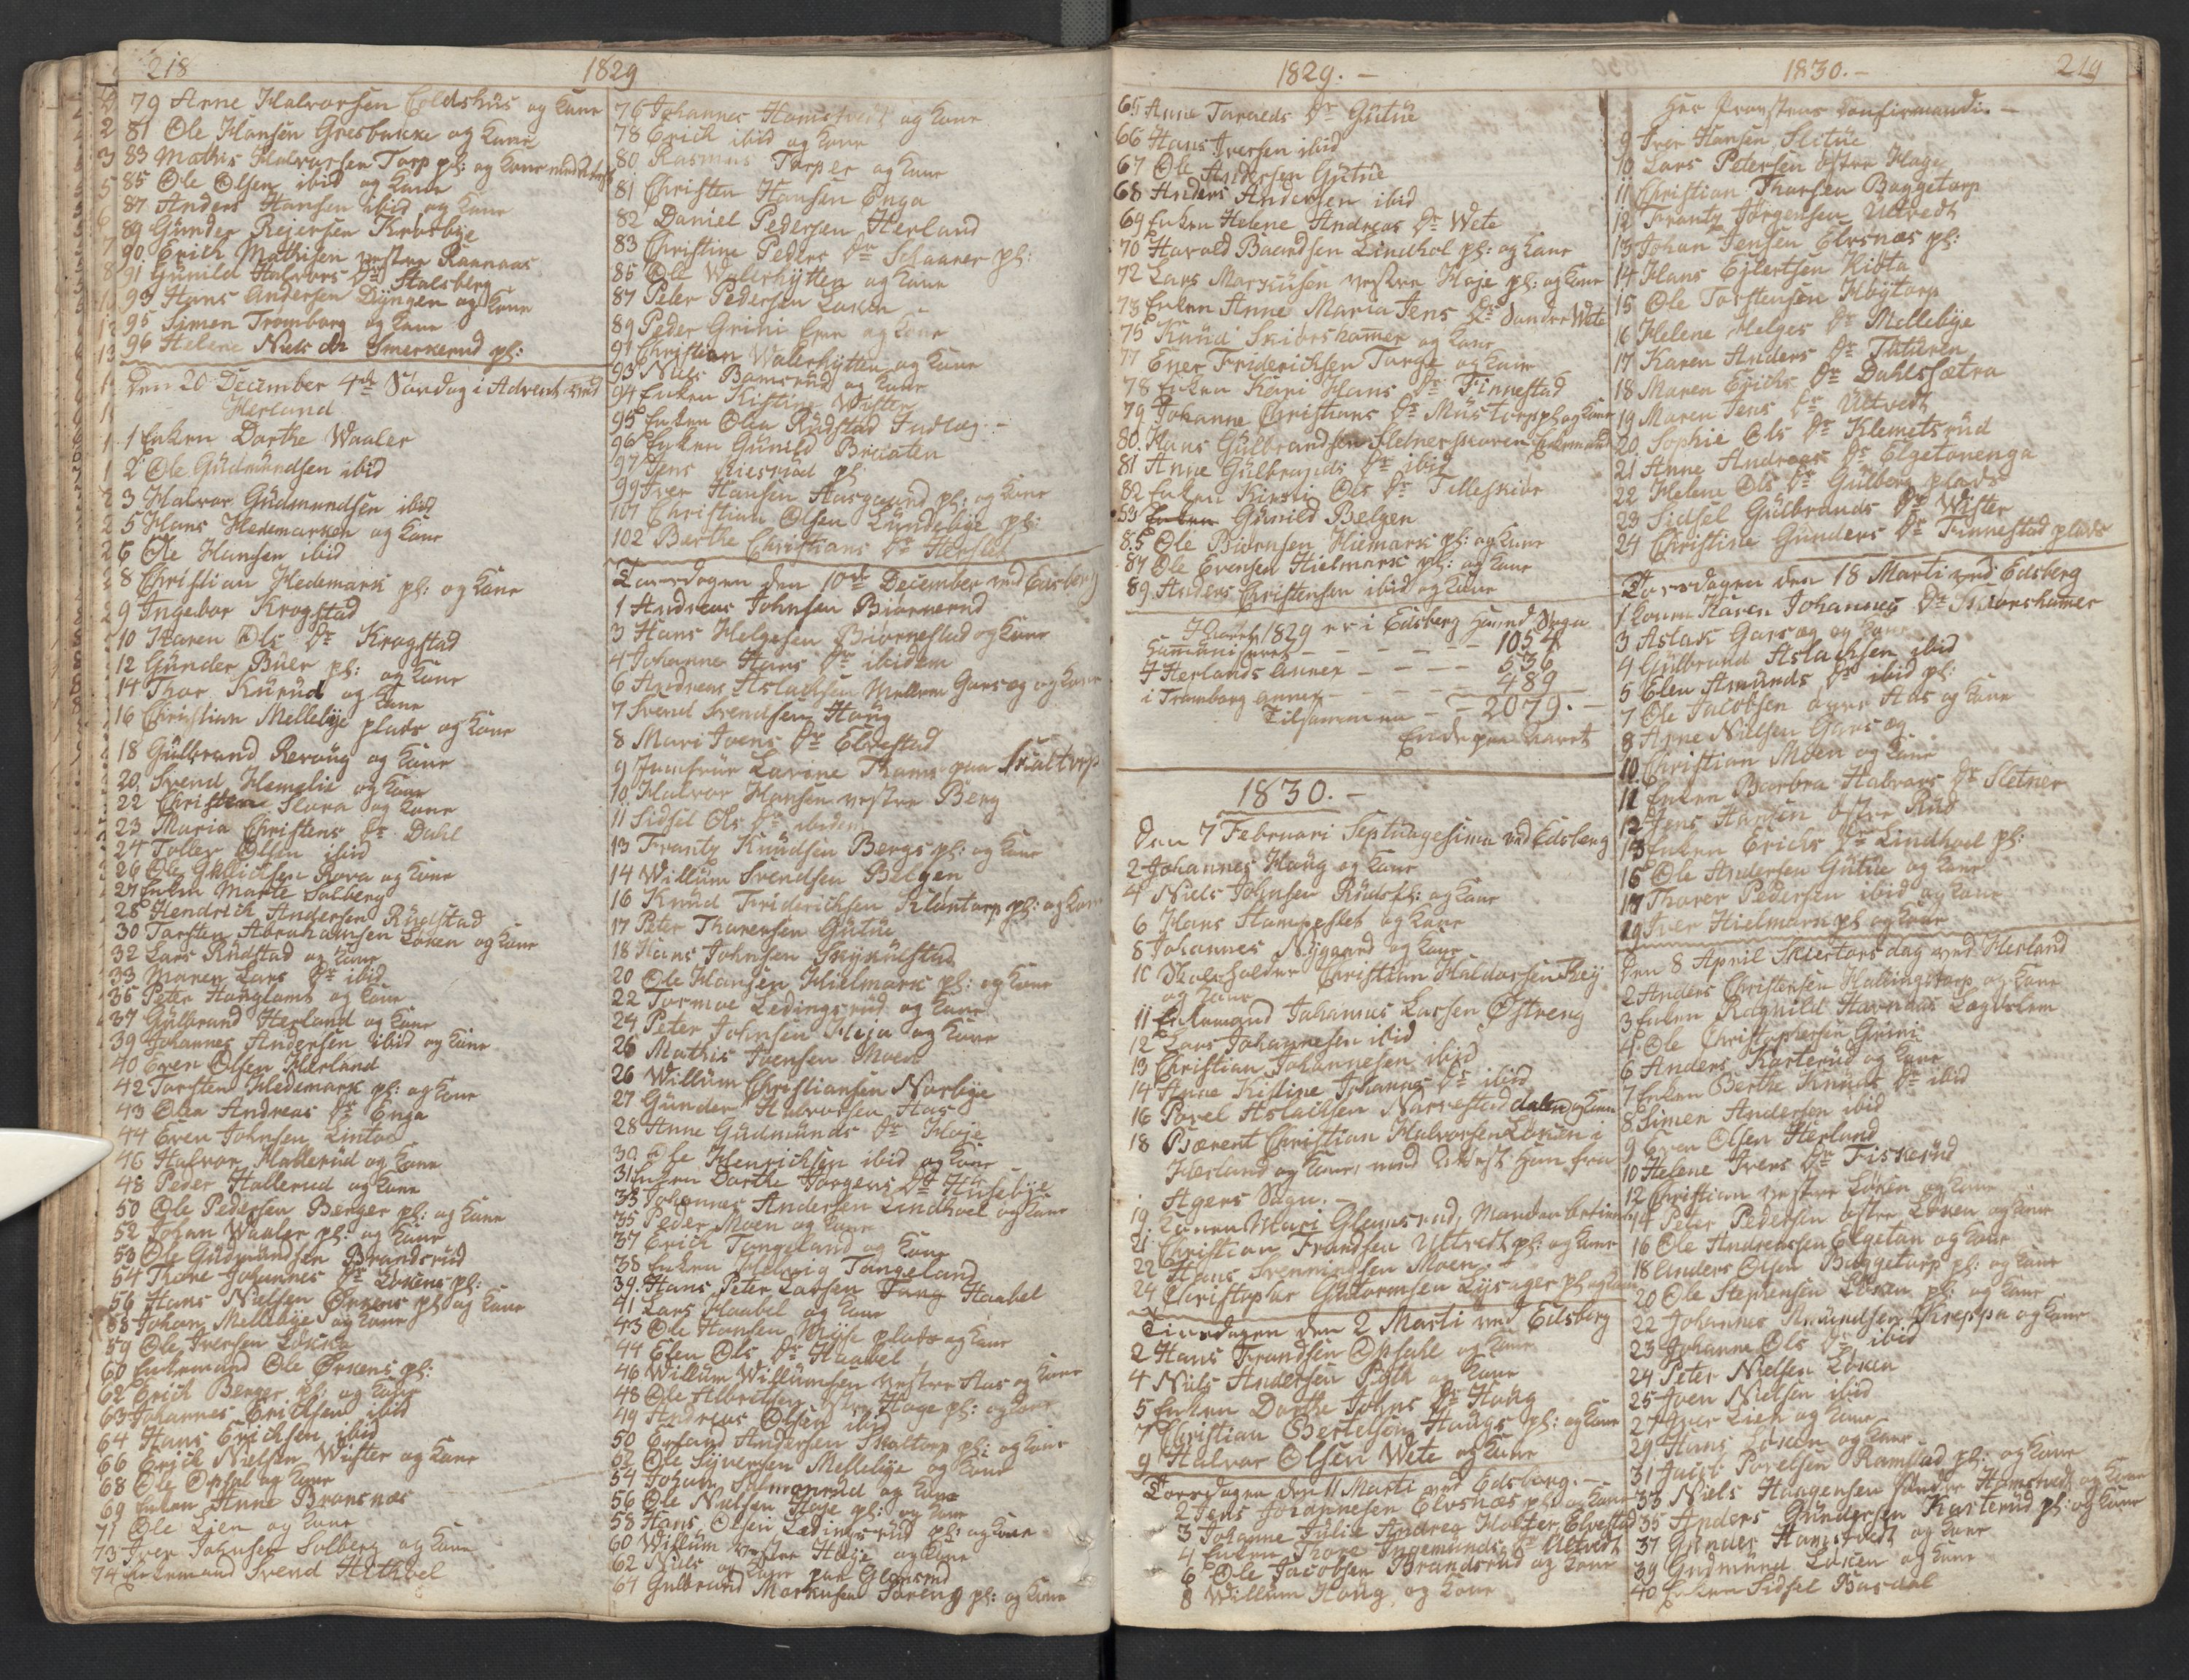 218
1829
79 Arne Halvorsen Eeldshus og Kone
81 Ole Hansen Gresbakke og Kone
83 Mathis Halvorsen Torp pl: og Kone
85 Ole Olsen ibid og Kone
87 Anders Hansen ibid og Kone
89 Günder Rejersen Krosbye
90 Erich Mathisen vestre Rannaas
91 Gunild Halvors Dr Stalsberg
93 Hans Andersen Dyngen og Kone
95 Simen Tromborg og Kone
96 Helene Niels dr Smerkerud pl:
Den 20 December 4de Søndag i Advent ved
Herland
1 Enken Dorthe Waaler
2 Ole Güdmündsen ibid
3 Halvor Güdmundsen ibid
5 Hans Hedemarken og Kone
6 Ole Hansen ibid
8 Christian Hedemark pl: og Kone
9 Ingebor Krogstad
10 Karen Ols Dr Krogstad
12 Günder Buer pl: og Kone
14 Thor Kürüd og Kone
16 Christian Mellebye plads og Kone
18 Gülbrand Revoug og Kone
20 Svend Hemelie og Kone
22 Christen Slora og Kone
23 Maria Christens Dr Dahl
24 Toller Olsen ibid
26 Ole Gullichsen Rova og Kone
27 Enken Marte Solberg
28 Hendrich Andersen Rüdstad
30 Torsten Abrahamsen Løken og Kone
32 Lars Rüdstad og Kone
33 Maren Lars Dr ibid
36 Peter Hauglamb og Kone
37 Gülbrand Herland og Kone
39 Johannes Andersen ibid og Kone
40 Even Olsen Herland
42 Torsten Hedemark pl: og Kone
43 Olea Andreas Dr Enga
44 Even Johnsen Lintoe
46 Halvor Hallerüd og Kone
48 Peder Hallerud og Kone
50 Ole Pedersen Berger pl: og Kone
52 Johan Waaler pl: og Kone
53 Ole Güdmundsen Brandsrud
54 Thore Johannes Dr Løkens pl:
56 Hans Nielsen Ørkens pl og Kone
58 Johan Mellebye og Kone
59 Ole Iversen Løkka
60 Enkemand Ole Ørkens pl:
62 Erich Berger pl: og Kone
63 Johannes Erichsen ibid
64 Hans Erichsen ibid
66 Erich Nielsen Wister og Kone
68 Ole Opsal og Kone
69 Enken Anne Bransnæs
71 Ole Lien og Kone
73 Iver Johnsen Solberg og Kone
74 Enkemand Svend Hethoel
76 Johannes Hamstvedt og Kone
78 Erich ibid og Kone
80 Rasmus Torper og Kone
81 Christen Hansen Enga
82 Daniel Pedersen Herland
83 Christine Peders Dr Schanrer pl:
85 Ole Walerhytten og Kone
87 Peter Pedersen Løken
89 Peder Grini Eier og Kone
91 Christian Walerhytten og Kone
93 Niels Bamsrüd og Kone
94 Enken Kistine Wister
95 Enken Olea Rüdstad Indlæg
96 Enken Günild Braaten
97 Jens Kiesrüd pl
99 Iver Hansen Aasgaard pl: og Kone
101 Christian Olsen Lündebye pl:
102 Berthe Christians Dr Herslet
Torsdagen den 10de December ved Edsberg
1 Andreas Johnsen Biørnerud
3 Hans Helgesen Biørnestad og Kone
4 Johanne Hans Dr ibidem
6 Andreas Aslachsen Mellem Garseg og Kone
7 Svend Svendsen Haug
8 Mari Ivens Dr Elvestad
9 Jomfrüe Lavine Thams paa Skultorp
10 Halvor Hansen vestre Berg
11 Sidsel Ols Dr ibidem
13 Frantz Knüdsen Bergs pl: og Kone
14 Willüm Svendsen Belgen
16 Knüd Friderichsen Klontorp pl: og Kone
17 Peter Thoresen Gütüe
18 Hans Johnsen Snyrülstad
20 Ole Hansen Hielmark pl: og Kone
22 Tormoe Ledingsrüd og Kone
24 Peter Johnsen Heja og Kone
26 Mathis Ivensen Moen
26 Willüm Christiansen Norbye
27 Günder Halvorsen Aas
28 Anne Güdmünds Dr Høje
30 Ole Henrichsen ibid og Kone
31 Enken Dorthe Jørgens Dr Hüsebye
33 Johannes Andersen Lindhoel og Kone
35 Peder Moen og Kone
37 Erich Tangeland og Kone
38 Enken Helvig Tangeland
39 Hans Peter Larsen Haabel
41 Lars Haabel og Kone
43 Ole Hansen Myse plads og Kone
44 Elen Ols Dr Haabel
46 Willüm Willümsen vestre Aas og Kone
48 Ole Albretsen østre Hage pl: og Kone
49 Andreas Olsen ibid
50 Erland Andersen Skaltorp pl: og Kone
52 Ole Syversen Mellebye og Kone
54 Johan Salmonrud og Kone
56 Ole Nielsen Høje pl: og Kone
58 Hans Olsen Ledingsrüd pl: og Kone
60 Willüm vestre Høye og Kone
62 Niels og Kone paa Glamsrud
64 Gulbrand Markusen Søreng pl: og Kone
1829. –
1830. –
219
65 Anne Taralds Dr Gütüe
66 Hans Iversen ibid
67 Ole Andersen Gütüe
68 Anders Andersen ibid
69 Enken Helene Andreas Dr Wete
70 Harald Baardsen Lindhol pl: og Kone
72 Lars Markusen vestre Høje pl: og Kone
73 Enken Anne Maria Jens Dr Søndre Wete
75 Knüd Skiørshamer og Kone
77 Ener Friderichsen Torge og Kone
78 Enken Kari Hans Dr Finnestad
79 Johanne Christians Dr Müstorp pl og Kone
80 Hans Gülbrandsen Sletnerskoven Enkemand
81 Anne Gülbrands Dr ibid
82 Enken Kirsti Ols Dr Tilleskiør
83 Günild Belgen
85 Ole Biørnsen Hiemark pl: og Kone
87 Ole Evensen Hielmark pl: og Kone
89 Anders Christensen ibid og Kone
I Aaret 1829 er i Edsberg Hoved Sogn
Comüniseret – – – 1054
I Herlands Annex – – – 536
i Tromborg annex – – – 489
Tilsammen – – 2079. –
Ende paa Aaret
1830. –
Den 7 Februari Septüagesima ved Edsberg
2 Johannes Haüg og Kone
4 Niels Johnsen Rüds pl: og Kone
6 Hans Stampeslet og Kone
8 Johannes Nygaard og Kone
10 Skoleholder Christian Haldorsen
og Kone
11 Enkemand Johannes Larsen Østreng
12 Lars Johannesen ibid
13 Christian Johannesen ibid
14 Anne Kistine Johannes Dr ibid
16 Povel Aslachsen Narvestad dalen og Kone
18 Bærent Christian Halvorsen Løken i
Herland og Kone, med Attest han fra
Agers Sogn. –
19 Konen Mari Glamsrud, Manden
21 Christian Frandsen Ultvedt pl: og Kone
22 Hans Svenningsen Moen
24 Christopher Guttormsen Lysager pl og Kone
Tiirsdagen den 2 Marti ved Edsberg
2 Hans Frandsen Opsahl og Kone
4 Niels Andersen Popk og Kone
5 Enken Dorthe Johns Dr Haüg
7 Christian Bertelsen Haügs pl: og Kone
9 Halvor Olsen Wete og Kone
Torsdagen den 11 Marti ved Edsberg. –
2 Jens Johannesen Elvsnæs pl: og Kone
3 Johanne Julie Andrea Holter Elvestad
4 Enken Thore Ingemunds Dr Ultvedt
6 Ole Jacobsen Brandsrüd og Kone
8 Willüm Haug og Kone
Her Provstens Confirmandi. –
9 Iver Hansen Slitüe
10 Lars Petersen østre Hage
11 Christian Thorsen Baggetorp
12 Frantz Jørgensen Ültvedt
13 Johan Jensen Elvsnæs pl:
14 Hans Ejlertsen Kiøta
15 Ole Torstensen Høytorp
16 Helene Helges Dr Mellebye
17 Karen Anders Dr Thüren
18 Maren Erichs Dr Dahlssætra
19 Maren Jens Dr Ultvedt
20 Sophie Ols Dr Klemetsrüd
21 Anne Andreas Dr Elgetonenga
22 Helene Ols Dr Gülberg plads
23 Sidsel Gülbrands Dr Wister
24 Christine Günders Dr Finnestad plads
Torsdagen den 18 Marti ved Edsberg
1 Konen Karen Johannes Dr Skiørshamer
3 Aslak Garseg og Kone
4 Gülbrand Aslachsen ibid
5 Elen Amünds Dr ibid pl:
7 Ole Jacobsen øvre Aas og Kone
8 Arne Nilsen Garseg
10 Christian Moen og Kone
11 Enken Barbra Halvors Dr Sletner
12 Jens Hansen østre Rüd
13 Enken Erichs Dr Lindhoel pl:
15 Ole Andersen Gütüe og Kone
17 Thorer Pedersen ibid og Kone
19 Iver Hielmark pl og Kone
Den 8 April Skiertorsdag ved Herland
2 Anders Christensen Hæilingstorp og Kone
3 Enken Ragnild Haavors Lægdslem
4 Ole Christophersen Grini
6 Anders Karterüd og Kone
7 Enken Berthe Knüds Dr ibid
8 Simen Andersen ibid
9 Even Olsen Herland
10 Helene Ivers Dr Fiskerüd
12 Christian vestre Løken og Kone
14 Peter Pedersen østre Løken og Kone
16 Ole Andreassen Elgetun og Kone
18 Anders Olsen Baggetorp pl: og Kone
20 Ole Stephensen Løken pl: og Kone
22 Johannes Amündsen Kreppa og Kone
23 Johanne Ols Dr ibid
24 Peter Nielsen Løken
25 Iven Nielsen ibid
27 Iver Lien og Kone
29 Hans Løken og Kone
31 Jacob Povelsen Ramstad pl: og Kone
33 Niels Haagensen søndre Hamstvedt og Kone
35 Anders Gündersen Karterüd pl: og Kone
37 Günder Hamstvedt og Kone
39 Gudmünd Løken og Kone
40 Enken Sidsel Basdal